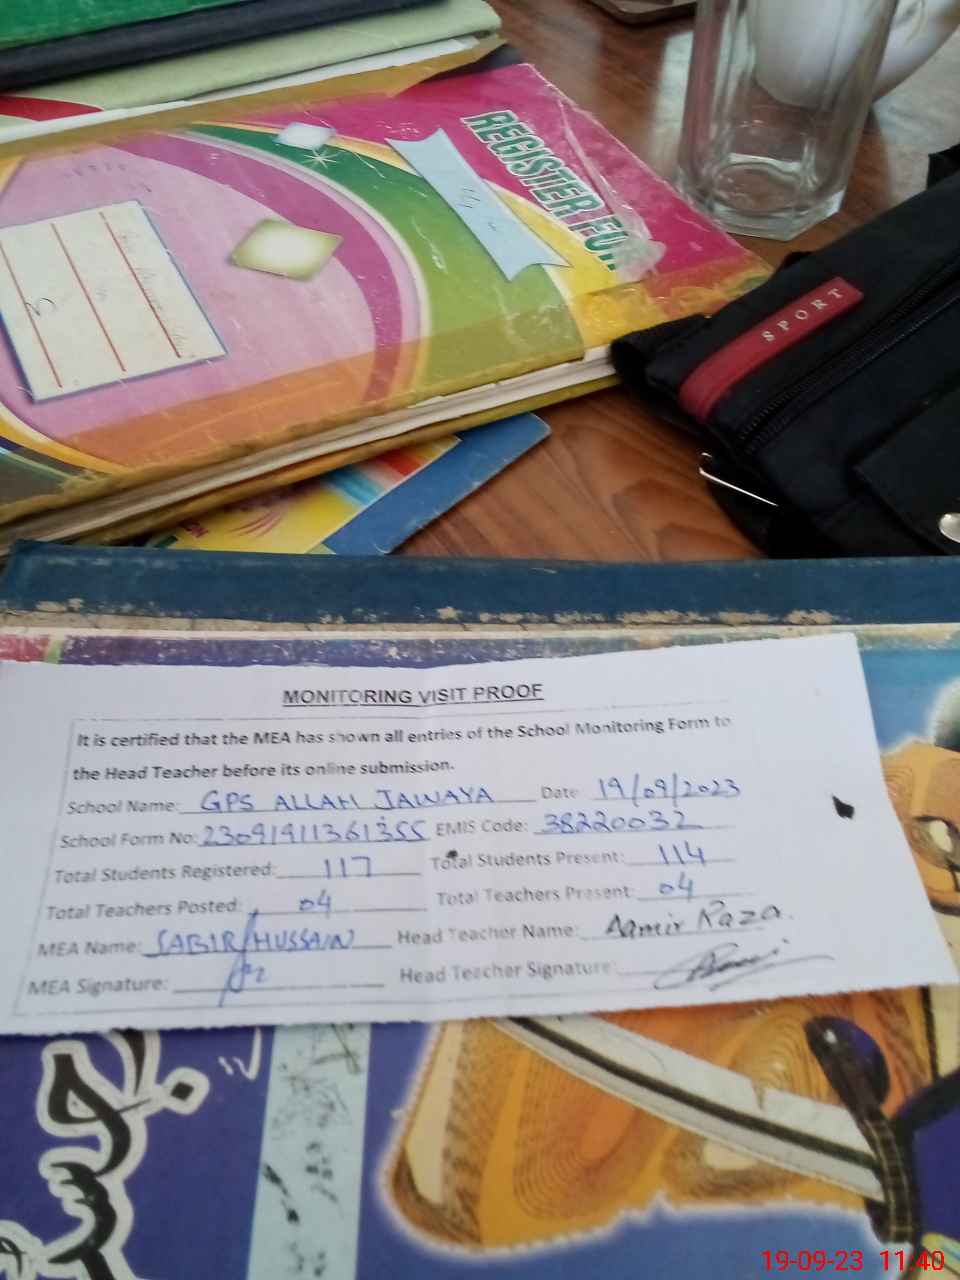 REGISTER FOR
SPORT
MONITORING VISIT PROOF
It is certified that the MEA has shown all entries of the School Monitoring Form to
the Head Teacher before its online submission.
School Name: GPS ALLAH JAWAYA Date 19/09/2023
School Form No: 23091911361355 EMIS Code: 38220032
Total Students Registered: 117 Total Students Present: 114
Total Teachers Posted: 04 Total Teachers Present: 04
MEA Name: SABIR HUSSAIN Head Teacher Name: Aamir Raza.
MEA Signature: Head Teacher Signature:
19-09-23 11:40